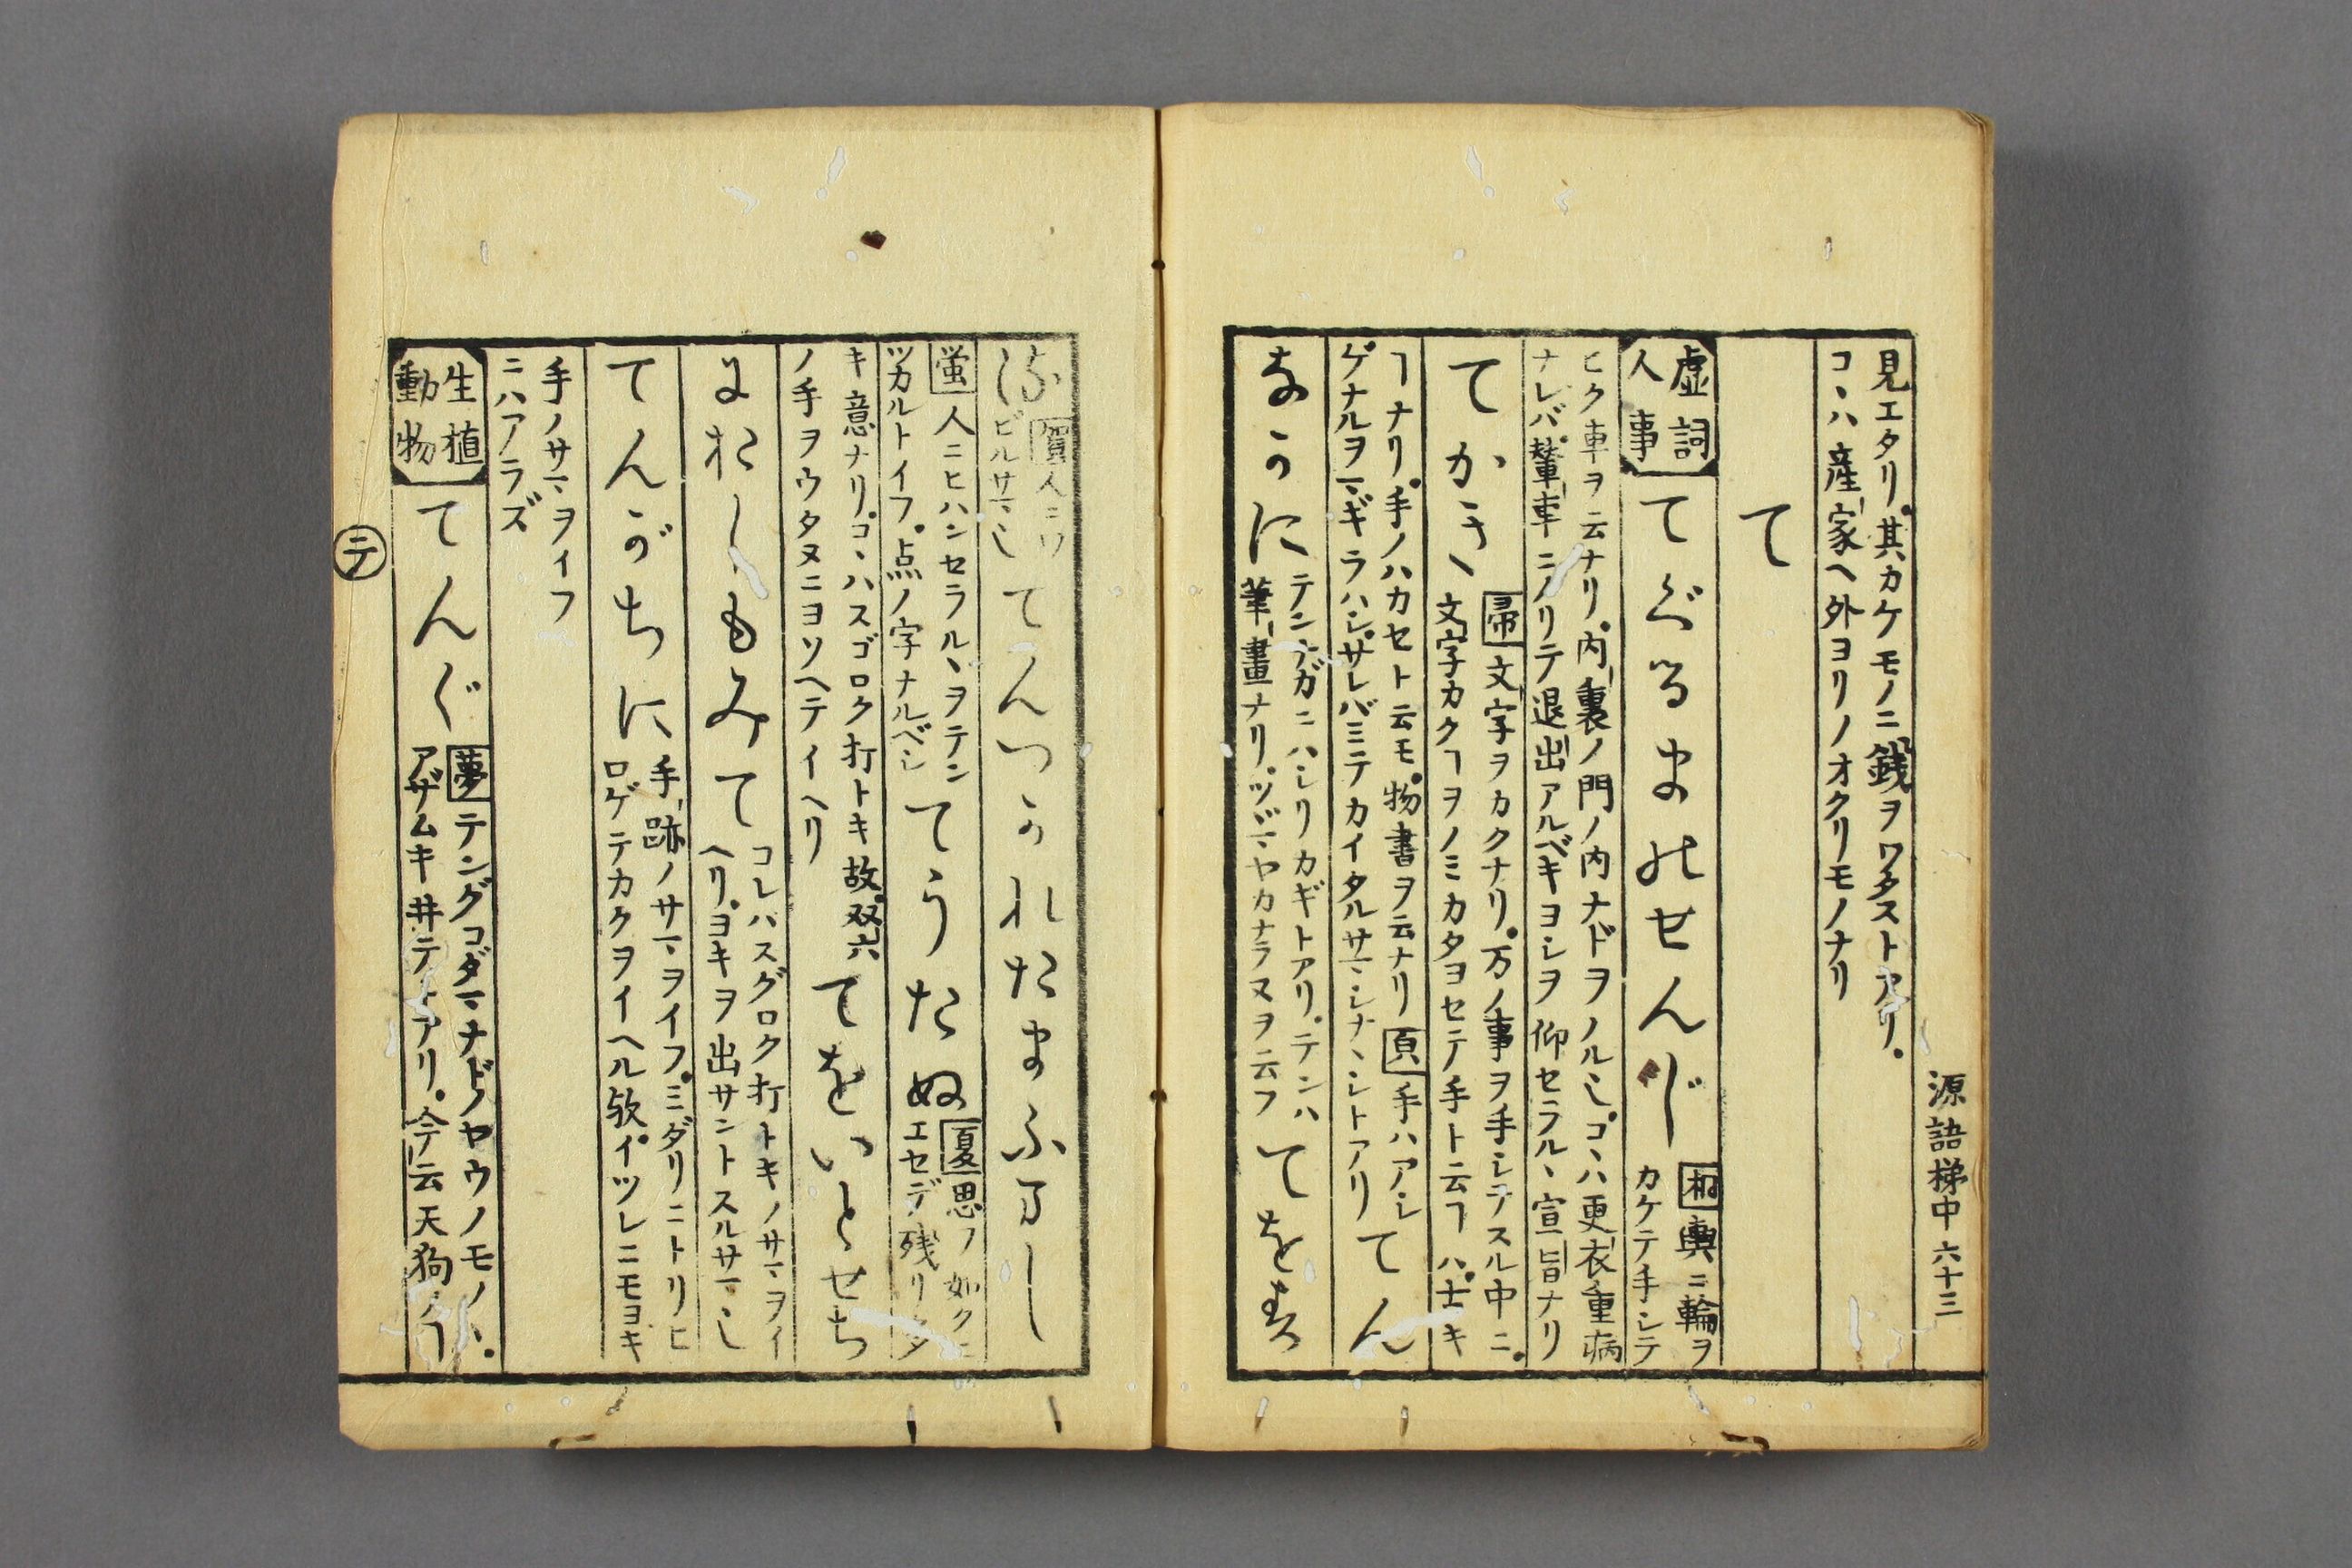 源語梯中 六十三
見エタリ。其カケモノニ銭ヲワタストアリ。
コヽハ産家ヘ外ヨリノオクリモノナリ
て
虚詞
人事
てぐるまのせんじ
桐 輿ニ輪ヲ
カケテ手シテ
ヒク車ヲ云ナリ。内裏ノ門ノ内ナドヲノル也。コヽハ更衣重病
ナレバ。輦車ニノリテ退出アルベキヨシヲ仰セラルヽ宣旨ナリ
てかき
帚 文字ヲカクナリ。万ノ事ヲ手シテスル中ニ。
文字カクヿヲノミカタヨセテ手ト云ヿハ。士キ
ヿナリ。手ノハカセト云モ。物書ヲ云ナリ
ゲナルヲマギラハシ。サレバミテカイタルサマシナヽシトアリ
頁 手ハアシ
てん
ながに
テンガニハシリカギトアリ。テンハ
筆畫ナリ。ツヾマヤカナラヌヲ云フ
てをゝ
賀 人ニワ
ビルサマ也
てんつかれたまふまし
蛍 人ニヒハンセラルヽヲテン
ツカルトイフ。点ノ字ナルベシ
てうたぬ
夏 思フ如クニ
エセデ残リタ
キ意ナリ。コヽハスゴロク打トキ故。双六
ノ手ヲウタヌニヨソヘテイヘリ
てをいとせち
におしもみて
コレバスグロク打トキノサマヲイ
ヘリ。ヨキヲ出サントスルサマ也
てんがちに
手跡ノサマヲイフ。ミダリニトリヒ
ロゲテカクヲイヘル欤。イツレニモヨキ
手ノサマヲイフ
ニハアラズ
生植
動物
てんぐ
夢 テングコダマナドノヤウノモノヽ。
アザムキ井テトアリ。今云天狗ノヿ
テ